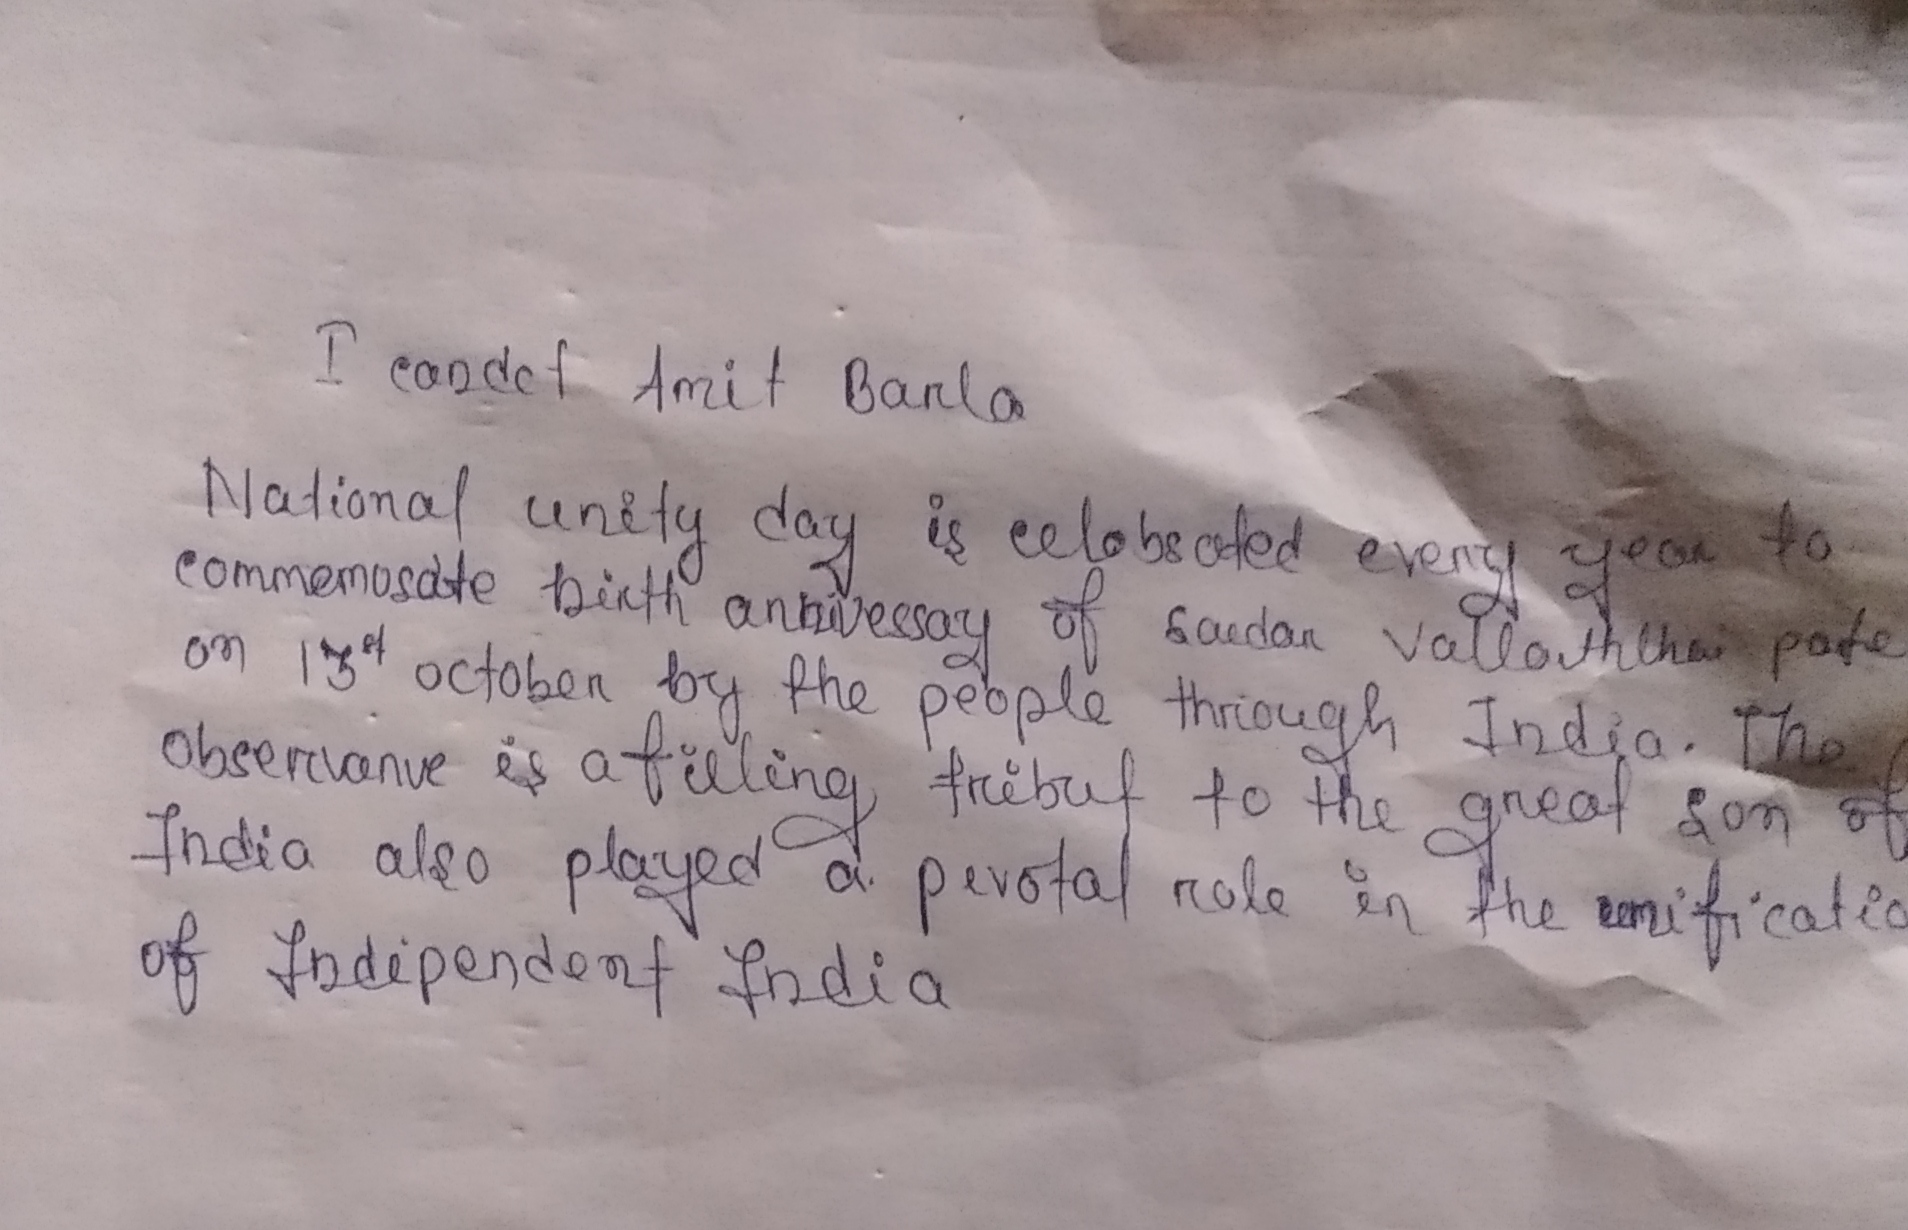 I candet Amit Barla
National unity day is celobsated every year to
commemosate birth annivessay of Sardar Vallaththai pate
on 13st october by the people through India. The
observanve is a filling tribut to the great son of
India also played a pivotal role in the unificatio
of Indipendent India